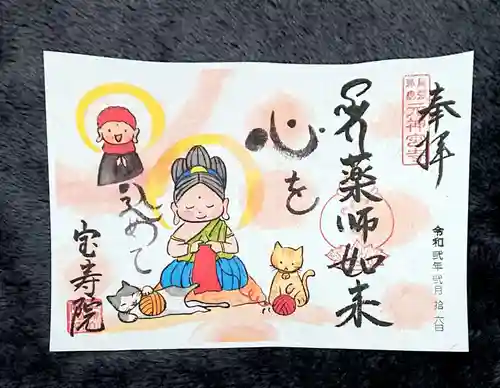 奉拝
令和弐年弐月拾六日
薬師如来
心を
込めて
宝寿院